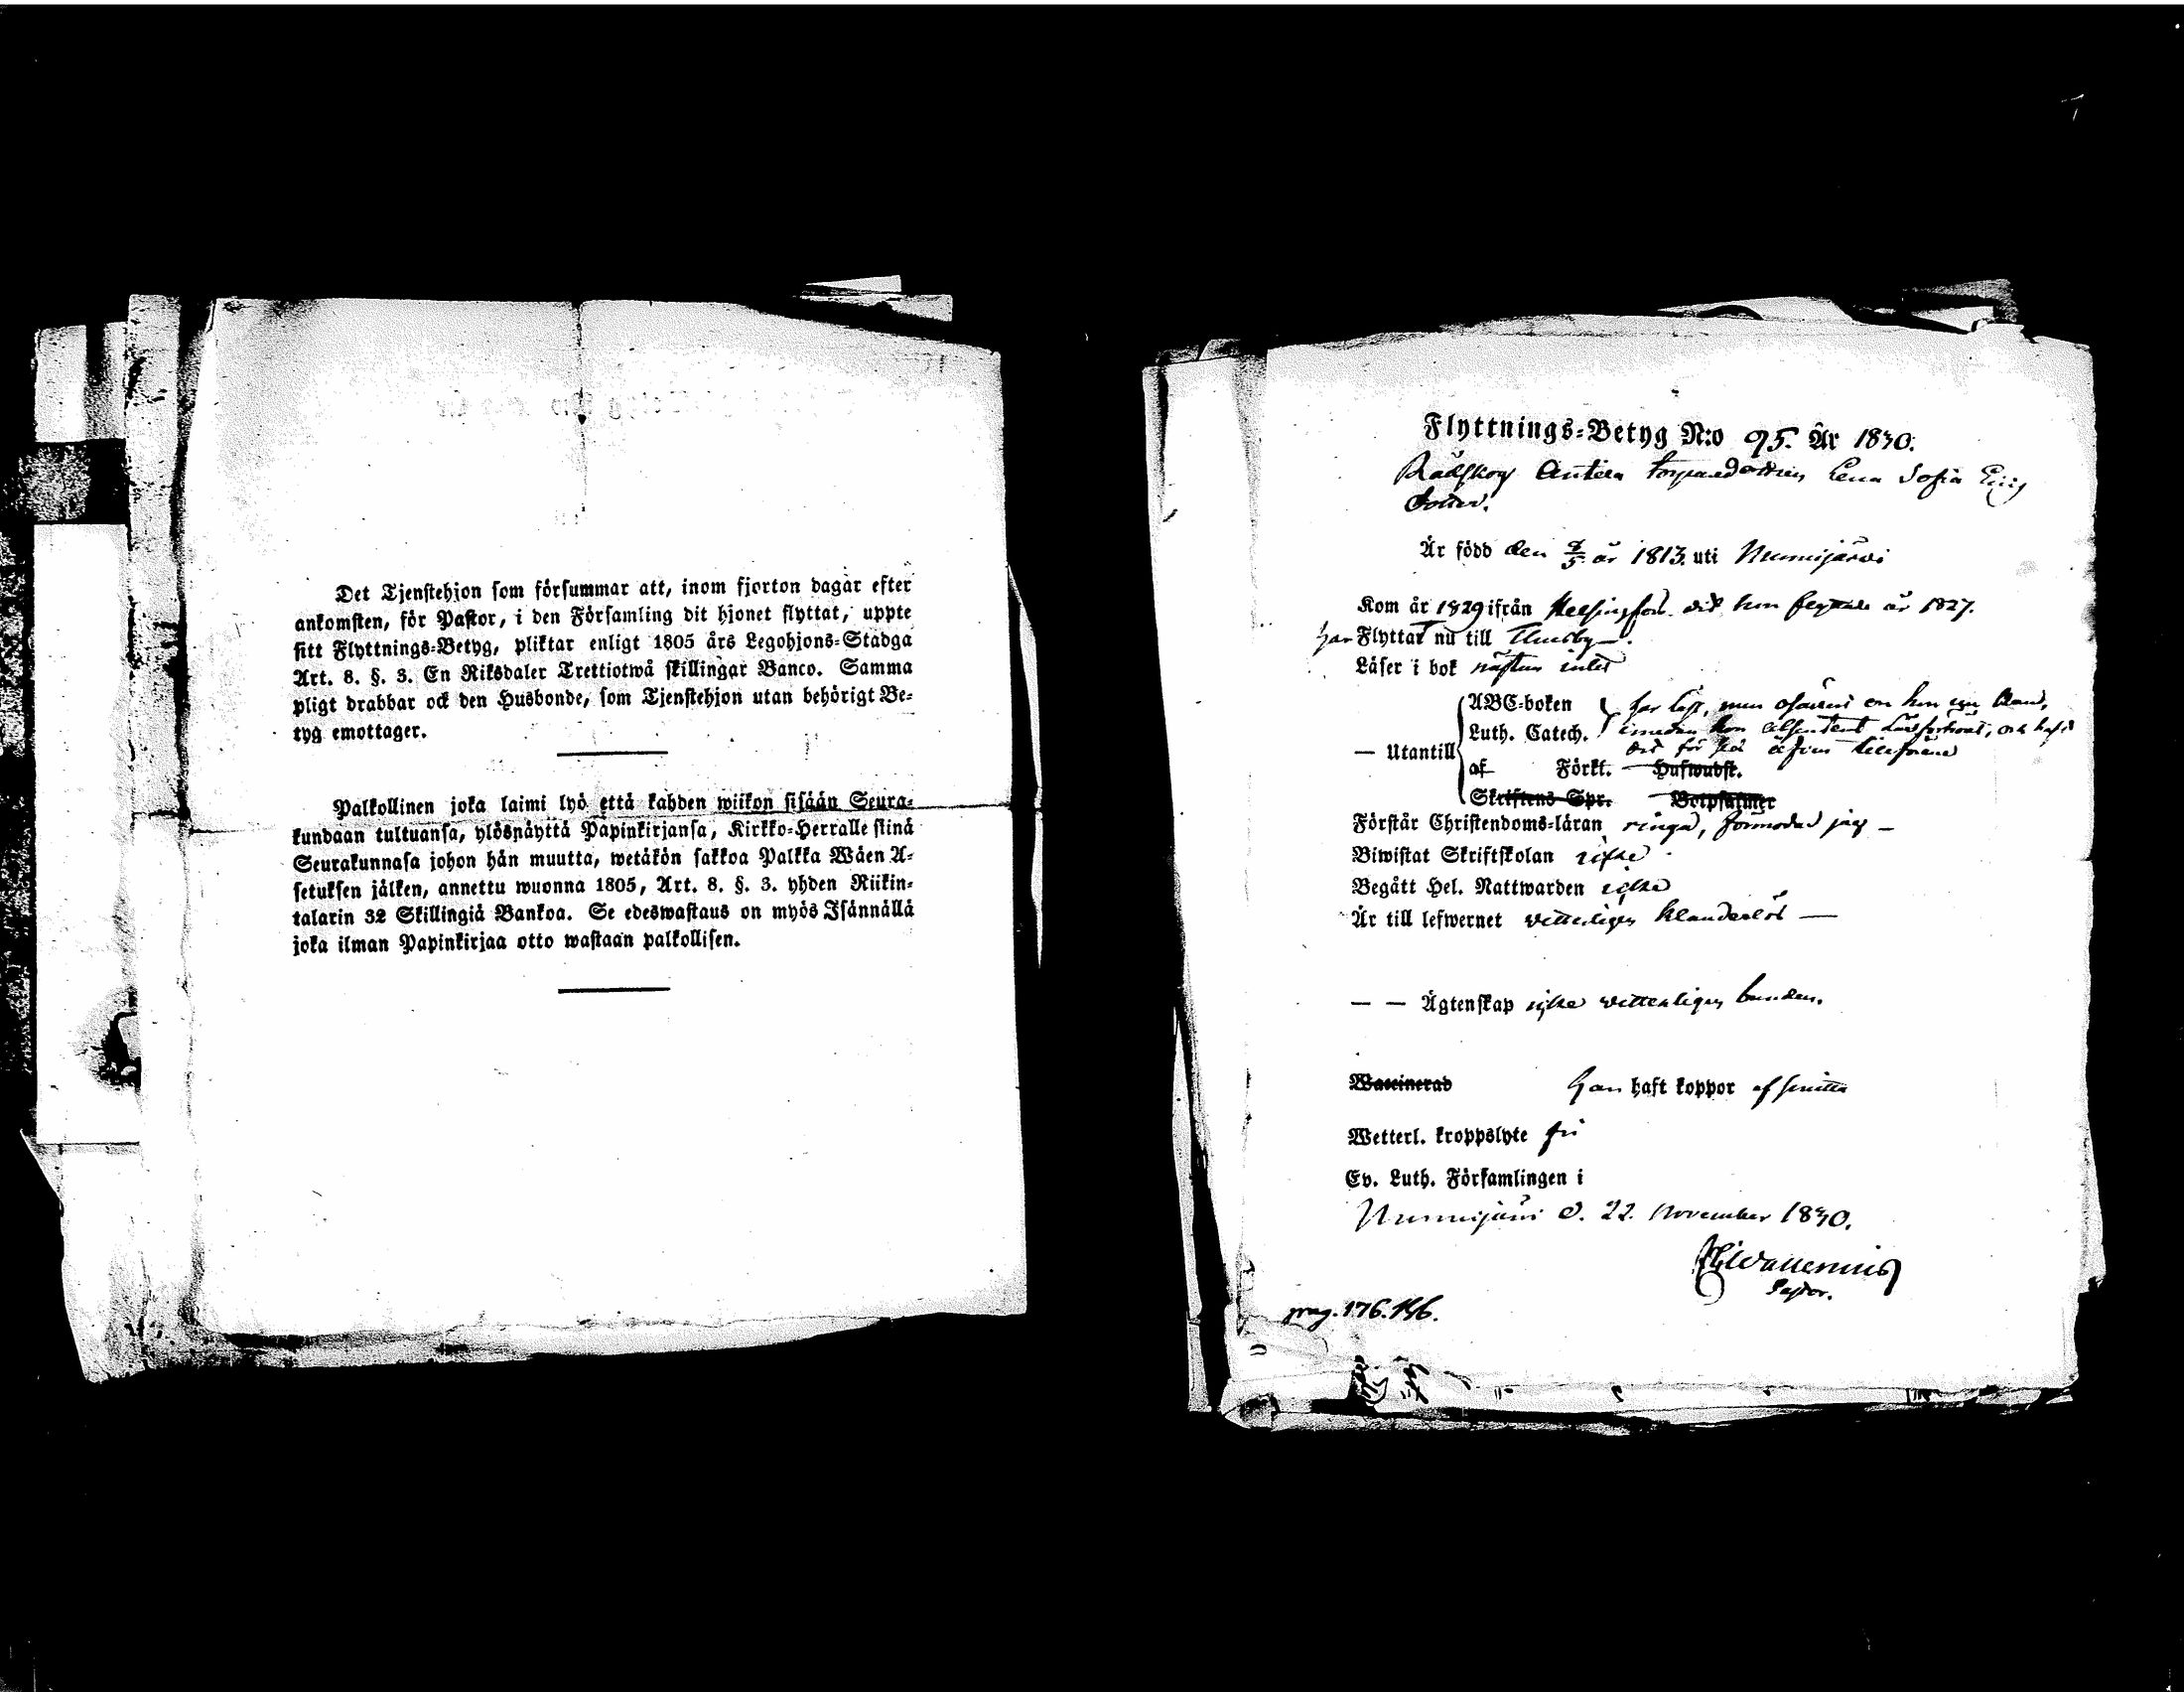 Det Tjenstehjon som försummar att, inom fjorton dagar efter
ankomsten, för Pastor, i den Församling dit hjonet flyttat, uppte
sitt Flyttnings-Betyg, pliktar enligt 1805 års Legohjons-Stadga
Art. 8. §. 3. En Riksdaler Trettiotwå skillingar Banco. Samma
pligt drabbar ock den Husbonde, som Tjenstehjon utan behörigt Be-
tyg emottager.
Palkollinen joka laimi lyö että kahden wiikon sisään Seura-
kundaan tultuansa, ylösnäyttä Papinkirjansa, Kirkko-Herralle siinä
Seurakunnasa johon hän muutta, wetäkön sakkoa Palkka Wäen A-
setuksen jälken, annettu wuonna 1805, Art. 8. §. 3. yhden Riikin-
talarin 32 Skillingiä Bankoa. Se edeswastaus on myös Isännällä
joka ilman Papinkirjaa otto wastaan palkollisen.
Flyttnings-Betyg N:o 95. År 1830.
Lena Sofia
dotter.
Är född den 9/5 år 1813. uti Nurmijärvi
Kom år 1829 ifrån Helsingfors dit hon flyttade år 1827.
har Flyttat nu till Thusby.
Läser i bok nästan intet
ABC-boken har läst, men
Luth. Catech. hon
— Utantill
af Förkl. Hufwudst.
Skriftens Spr. Botpsalmer
Förstår Christendoms-läran ringa, förmodar jag —
Biwistat Skriftskolan icke
Begått Hel. Nattwarden icke
Är till lefwernet vitterligen klanderlös —
— — Ägtenskap icke vitterligen bunden.
Waccinerad har haft koppor af smitta
Wetterl. kroppslyte fri
Ev. Luth. Församlingen i
Nurmijärvi d. 22. November 1830.
Wallenius
Pastor.
pag. 176.